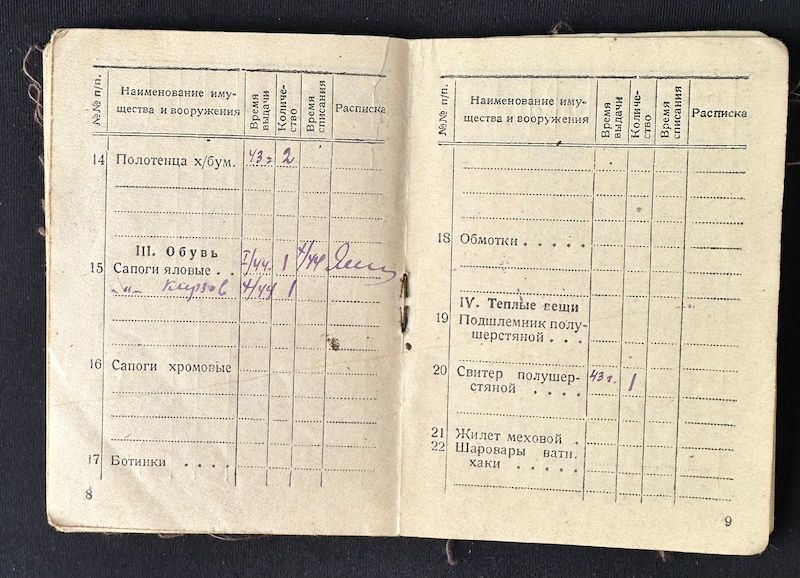 №№ п/п.
Наименование иму-
щества и вооружения
Время
выдачи
Количе-
ство
Время
списания
Расписка
14 Полотенца х/бум. 43 г 2
III. Обувь
15 Сапоги яловые . . I/44. 1 4/44
-"- кирзов 4/44 1
16 Сапоги хромовые
17 Ботинки . . . .
8
№№ п/п.
Наименование иму-
щества и вооружения
Время
выдачи
Количе-
ство
Время
списания
Расписка
18 Обмотки . . . . .
IV. Теплые вещи
19 Подшлемник полу-
шерстяной . . .
20 Свитер полушер-
стяной . . . . 43 г. 1
21 Жилет меховой .
22 Шаровары ватн.
хаки . . . . .
9